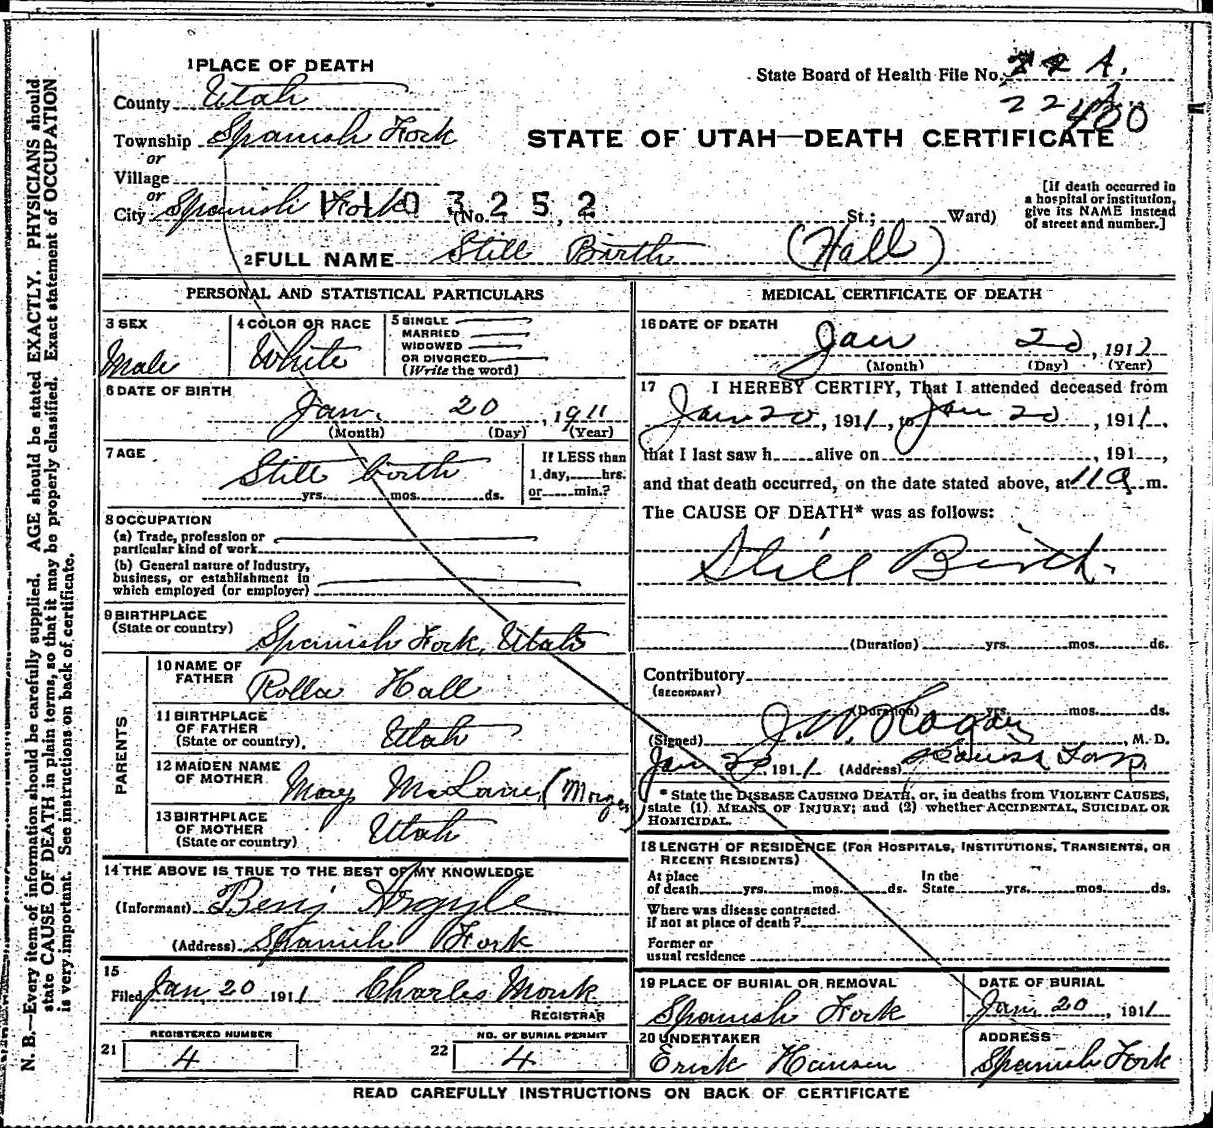 1 PLACE OF DEATH
State Board of Health File No. 22 A.
County Utah
22
400
Township Spanish Fork
STATE OF UTAH—DEATH CERTIFICATE
or
Village
or
City Spanish Fork (No. St.; Ward)
1103252
[If death occurred in
a hospital or institution,
give its NAME instead
of street and number.]
2 FULL NAME Still Birth (Hall)
PERSONAL AND STATISTICAL PARTICULARS
3 SEX
Male
4 COLOR OR RACE
White
5 SINGLE
MARRIED
WIDOWED
OR DIVORCED
(Write the word)
6 DATE OF BIRTH
Jan. 20, 1911
(Month) (Day) (Year)
7 AGE
Still birth
yrs. mos. ds.
If LESS than
1 day, hrs.
or min.?
8 OCCUPATION
(a) Trade, profession or
particular kind of work
(b) General nature of Industry,
business, or establishment in
which employed (or employer)
9 BIRTHPLACE
(State or country)
Spanish Fork, Utah
PARENTS
10 NAME OF
FATHER
Rolla Hall
11 BIRTHPLACE
OF FATHER
(State or country).
Utah
12 MAIDEN NAME
OF MOTHER
Mary
13 BIRTHPLACE
OF MOTHER
(State or country)
Utah
14 THE ABOVE IS TRUE TO THE BEST OF MY KNOWLEDGE
(Informant) Benj Argyle
(Address) Spanish Fork
15
Filed Jan 20 1911 Charles Monk
REGISTRAR
REGISTERED NUMBER
21 4
NO. OF BURIAL PERMIT
22 4
MEDICAL CERTIFICATE OF DEATH
16 DATE OF DEATH
Jan 20, 191
(Month) (Day) (Year)
17 I HEREBY CERTIFY, That I attended deceased from
Jan 20, 1911, to Jan 20, 1911.
that I last saw h alive on , 191 ,
and that death occurred, on the date stated above, at 11 a m.
The CAUSE OF DEATH* was as follows:
Still Birth.
(Duration) yrs. mos. ds.
Contributory
(SECONDARY)
(Duration) yrs. mos. ds.
(Signed) J. W. Hagan, M. D.
Jan 20, 1911 (Address)
* State the DISEASE CAUSING DEATH, or, in deaths from VIOLENT CAUSES,
state (1) MEANS OF INJURY; and (2) whether ACCIDENTAL, SUICIDAL OR
HOMICIDAL.
18 LENGTH OF RESIDENCE (FOR HOSPITALS, INSTITUTIONS, TRANSIENTS, OR
RECENT RESIDENTS)
At place
of death yrs. mos. ds.
In the
State yrs. mos. ds.
Where was disease contracted.
if not at place of death?
Former or
usual residence
19 PLACE OF BURIAL OR REMOVAL
Spanish Fork
DATE OF BURIAL
Jan. 20, 1911
20 UNDERTAKER
Erick Hansen
ADDRESS
Spanish Fork
READ CAREFULLY INSTRUCTIONS ON BACK OF CERTIFICATE
N. B.—Every item of information should be carefully supplied. AGE should be stated EXACTLY. PHYSICIANS should
state CAUSE OF DEATH in plain terms, so that it may be properly classified. Exact statement of OCCUPATION
is very important. See instructions on back of certificate.